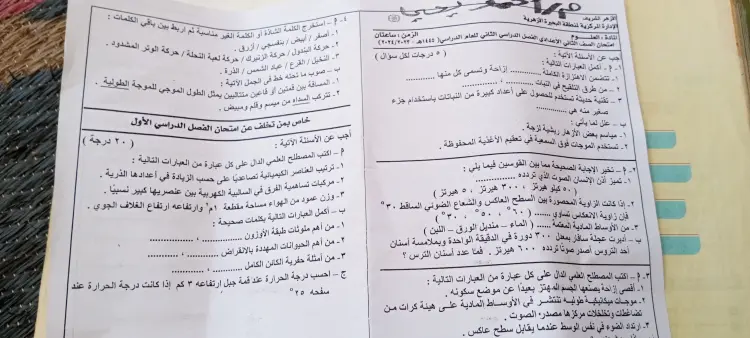 الأزهر الشريف
الإدارة المركزية لمنطقة البحيرة الأزهرية
المادة : العلـــوم
الزمن : ساعتان
امتحان الصف الثاني الإعدادي الفصل الدراسي الثاني للعام الدراسي ( ١٤٤٥هـ - ٢٠٢٣ / ٢٠٢٤ )
أجب عن الأسئلة الآتية :
( ٥ درجات لكل سؤال )
١ـ م ـ أكمل العبارات الآتية :
١- تتضمن الاهتزازة الكاملة ......... إزاحة وتسمى كل منها ...........
٢- من طرق التلقيح في النبات ......... , ...........
٣- تقنية حديثة تستخدم للحصول على أعداد كبيرة من النباتات باستخدام جزء صغير منه هي ...........
ب ـ علل لما يأتي :
١- مياسم بعض الأزهار ريشية لزجة .
٢- تستخدم الموجات فوق السمعية في تعقيم الأغذية المحفوظة .
٢ـ م ـ تخير الإجابة الصحيحة مما بين القوسين فيما يلي :
١- تميز أذن الإنسان الصوت الذي تردده ...........
( ٥٠ كيلو هيرتز , ٣٠٠٠ هيرتز , ٥ هيرتز )
٢- إذا كانت الزاوية المحصورة بين السطح العاكس والشعاع الضوئي الساقط ٣٠°
فإن زاوية الانعكاس تساوي ......... ( ٦٠° , ٥٠° , ٣٠° )
٣- من الأوساط المادية المعتمة ......... ( الماء - منديل الورق - اللبن )
ب ـ أديرت عجلة سافار بمعدل ٣٠٠ دورة في الدقيقة الواحدة وبملامسة أسنان
أحد التروس أصدر صوتًا تردده ٦٠٠ هيرتز . فما عدد أسنان الترس ؟
٣ـ م ـ اكتب المصطلح العلمي الدال على كل عبارة من العبارات التالية :
١- أقصى إزاحة يصنعها الجسم المهتز بعيدًا عن موضع سكونه .
٢- موجات ميكانيكية طولية تنتشر في الأوساط المادية على هيئة كرات من
تضاغطات وتخلخلات مركزها مصدر الصوت .
٣- ارتداد الضوء في نفس الوسط عندما يقابل سطح عاكس .
٤ـ م ـ استخرج الكلمة الشاذة أو الكلمة الغير مناسبة ثم اربط بين باقي الكلمات :
١- أصفر / أبيض / بنفسجي / أزرق .
٢- حركة البندول / حركة الزنبرك / حركة لعبة النحلة / حركة الوتر المشدود .
٣- النخيل / القرع / عباد الشمس / الذرة .
ب ـ صوب ما تحته خط في الجمل الآتية :
١- المسافة بين قمتين أو قاعين متتاليين يمثل الطول الموجي للموجة الطولية .
٢- تتركب السداه من ميسم وقلم ومبيض .
خاص بمن تخلف عن امتحان الفصل الدراسي الأول
أجب عن الأسئلة الآتية :
( ٢٠ درجة )
م ـ اكتب المصطلح العلمي الدال على كل عبارة من العبارات التالية :
١- ترتيب العناصر الكيميائية تصاعديًا على حسب الزيادة في أعدادها الذرية .
٢- مركبات تساهمية الفرق في السالبية الكهربية بين عنصريها كبير نسبيًا .
٣- وزن عمود من الهواء مساحة مقطعة ١م٢ وارتفاعه ارتفاع الغلاف الجوي .
ب ـ أكمل العبارات التالية بكلمات صحيحة :
١- من أهم ملوثات طبقة الأوزون ......... , ...........
٢- من أهم الحيوانات المهددة بالانقراض ......... , ...........
٣- من أمثلة حفرية الكائن الكامل ......... , ...........
ج ـ احسب درجة الحرارة عند قمة جبل ارتفاعه ٣ كم إذا كانت درجة الحرارة عند
سفحه ٢٥°